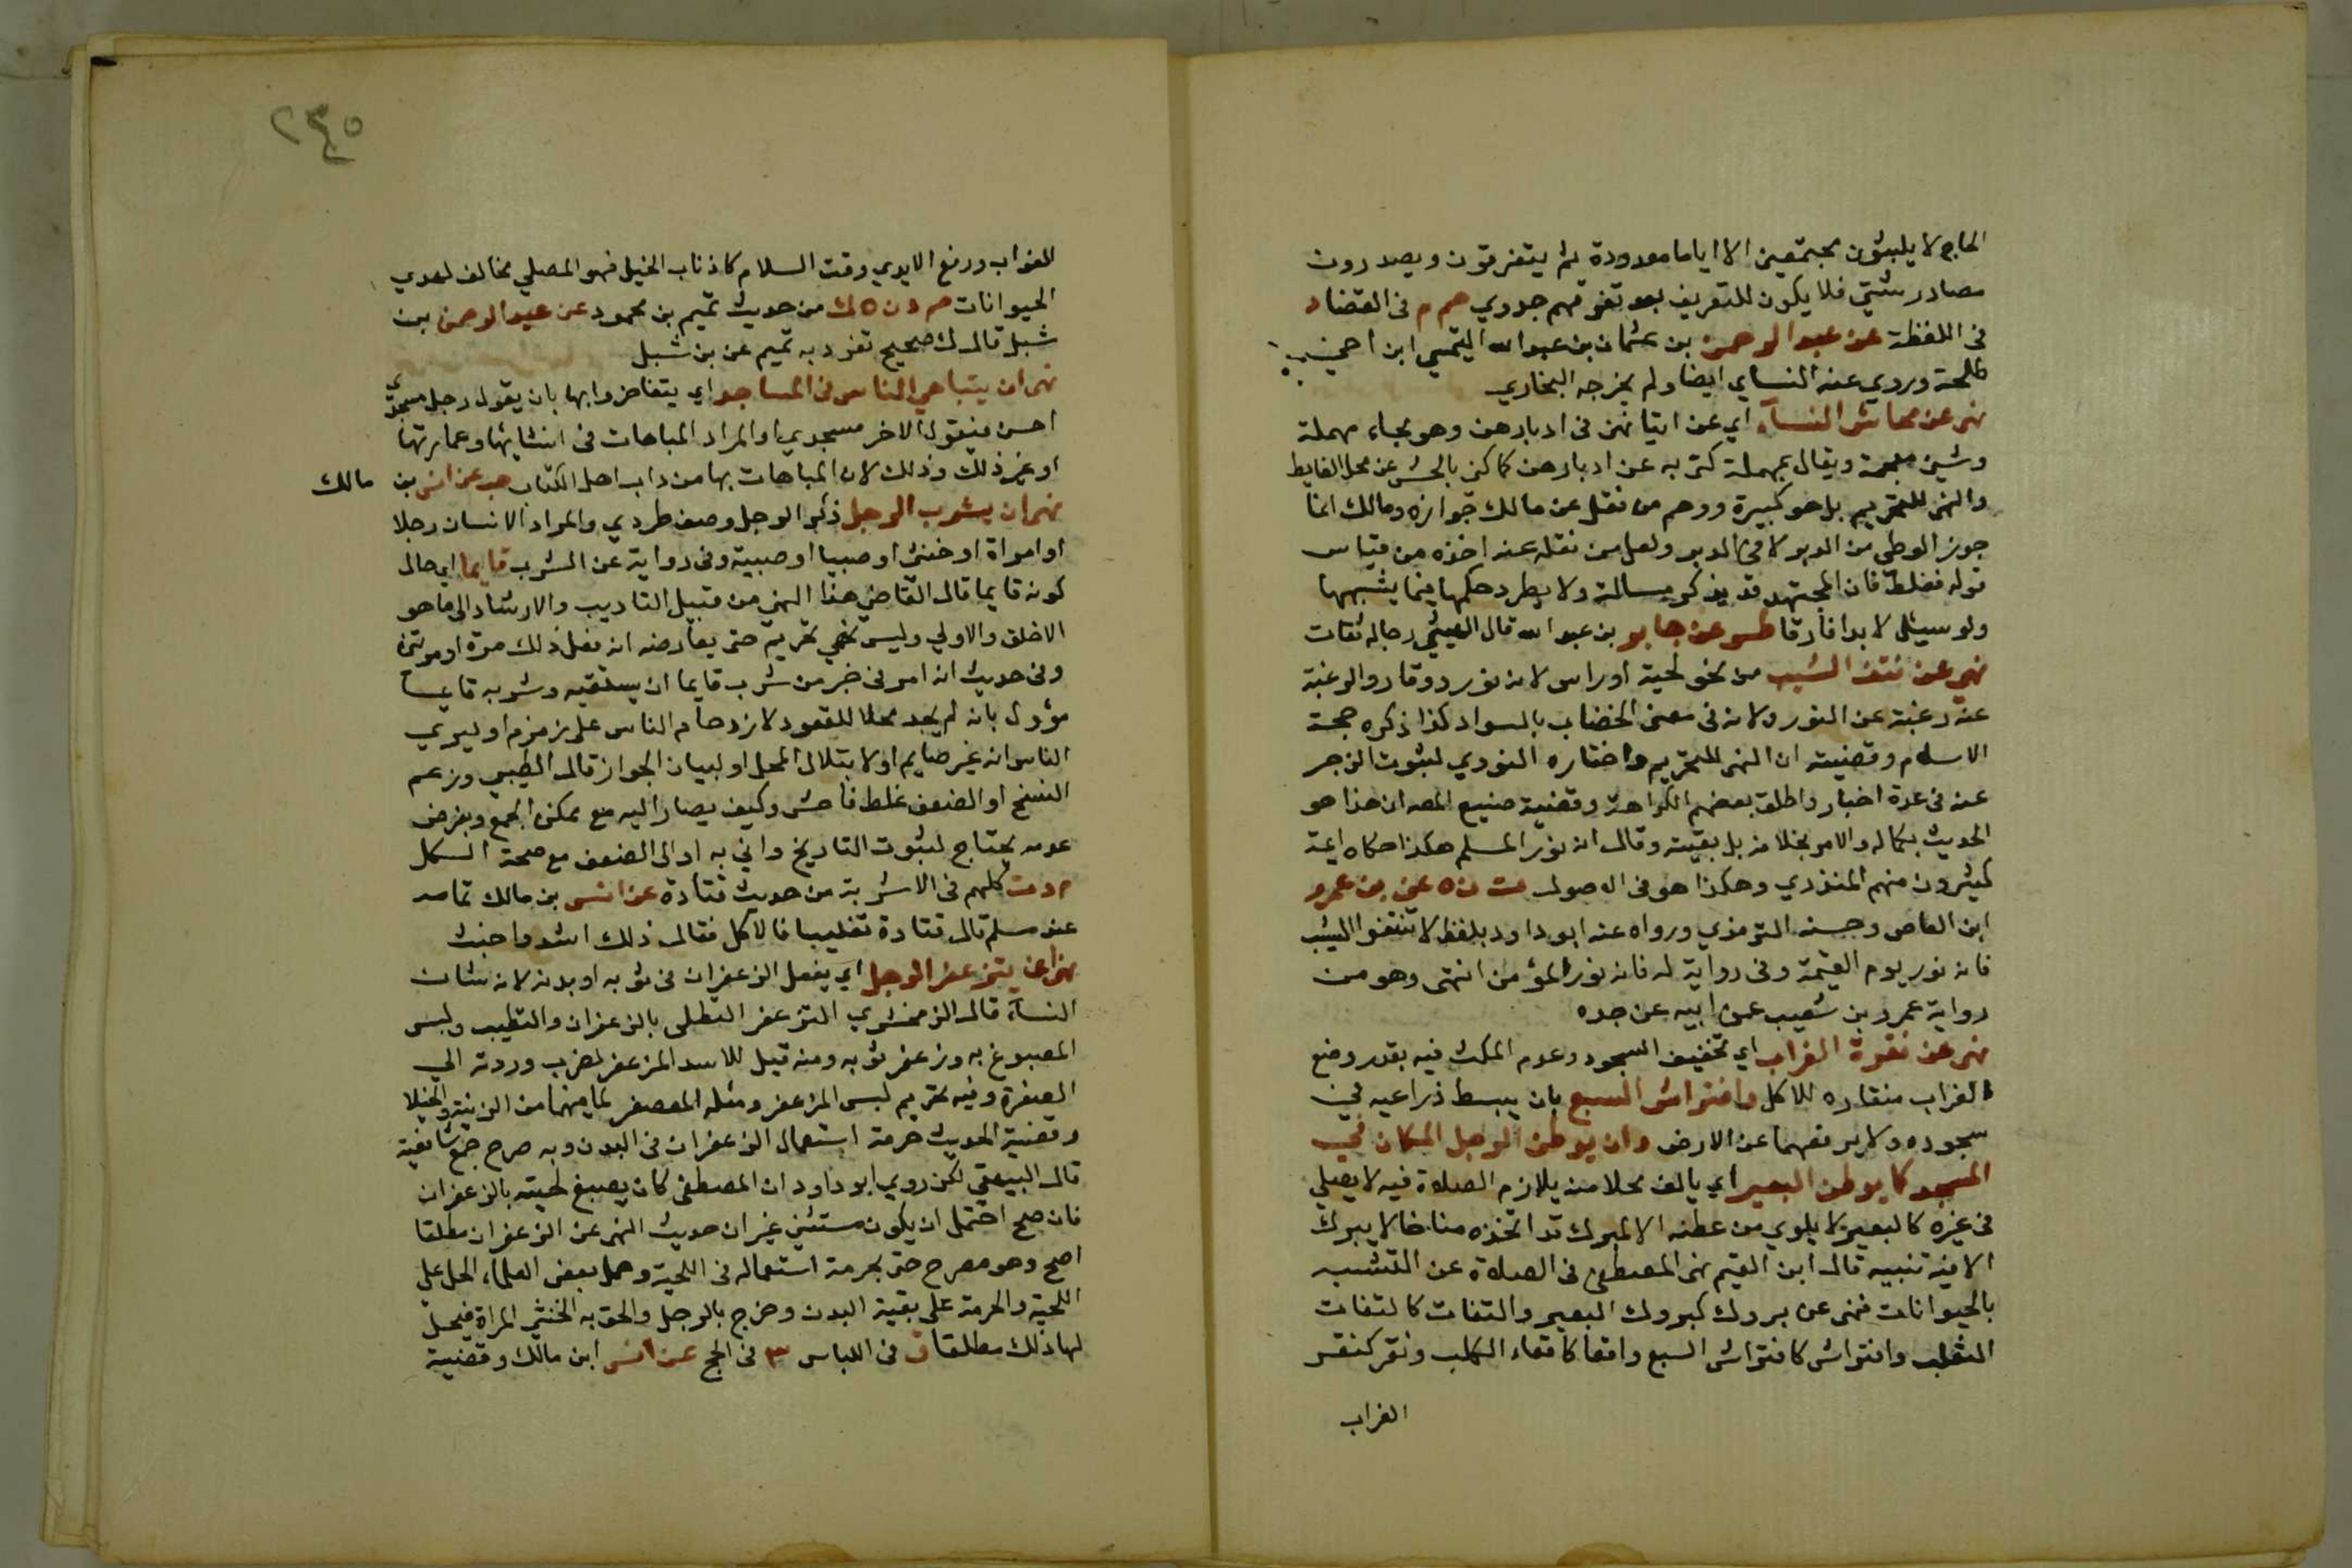 الحاج لا يلبثون مجتمعين الا اياما معدودة ثم يتفرقون ويصدرون
مصادر شتى فلا يكون للتعريف بعد تفرقهم جدوي حم م في القضاء د
في اللقطة عن عبد الرحمن بن عثمان بن عبد الله التيمي ابن اخي
طلحة وروي عنه النساي ايضا ولم يخرجه البخاري
نهى عن محاش النسآء اي عن اتيانهن في ادبارهن وهو بحاء مهملة
وشين معجمة ويقال بمهملة كنى به عن ادبارهن كما كنى بالحش عن محل الغايط
والنهى للتحريم بل هو كبيرة ووهم من نقل عن مالك جوازه ومالك انما
جوز الوطى من الدبر لا في الدبر ولعل من نقله عنه اخذه من قياس
قوله فغلط فان المجتهد قد يذكر مسالة ولا يطرد حكمها فيما يشبهها
ولو سيئل لابدا فارقا طس عن جابر بن عبد الله قال الهيثمي رجاله ثقات
نهى عن نتف الشيب من نحو لحية او راس لانه نور ووقار والرغبة
عنه رغبة عن النور ولانه في معنى الخضاب بالسواد كذا ذكره حجة
الاسلام وقضيته ان النهى للتحريم واختاره النووي لثبوت الزجر
عنه في عدة اخبار واطلق بعضهم الكراهة وقضية صنيع المصه ان هذا هو
الحديث بكماله والامر بخلافه بل بقيته وقال انه نور المسلم هكذا حكاه ايمة
كثيرون منهم المنذري وهكذا هو في الاصول ت ن ه عن بن عمرو
ابن العاص وحسنه الترمذي ورواه عنه ابو داود بلفظ لا تنتفوا الشيب
فانه نور يوم القيمة وفي رواية له فانه نور المؤمن انتهى وهو من
رواية عمرو بن شعيب عن ابيه عن جده
نهى عن نقرة الغراب اي تخفيف السجود وعدم المكث فيه بقدر وضع
الغراب منقاره للاكل وافتراش السبع بان يبسط ذراعيه في
سجوده ولا يرفعهما عن الارض وان يوطن الرجل المكان في
المسجد كما يوطن البعير اي يالف محلا منه يلازم الصلاة فيه لا يصلي
في غيره كالبعير لا يلوي من عطنه الا لمبرك قد اتخذه مناخا لا يبرك
الا فيه تنبيه قال ابن القيم نهى المصطفى في الصلاة عن التشبه
بالحيوانات فنهى عن بروك كبروك البعير والتفات كالتفات
الثعلب وافتراش كافتراش السبع واقعا كاقعاء الكلب ونقر كنقر
الغراب
٢٣٤٥
الغراب ورفع الايدي وقت السلام كاذناب الخيل فهو المصلي مخالف لهدي
الحيوانات حم د ن ه ك من حديث تميم بن محمود عن عبد الرحمن بن
شبل قال ك صحيح تفرد به تميم عن بن شبل
نهى ان يتباهى الناس في المساجد اي يتفاخروا بها بان يقول رجل مسجدي
احسن فيقول الاخر مسجدي او المراد المباهات في انشايها وعمارتها
او غير ذلك وذلك لان المباهات بها من داب اهل الكتاب حب عن انس بن مالك
نهى ان يشرب الرجل ذكر الرجل وصف طردي والمراد الانسان رجلا
او امراة او خنثى او صبيا او صبية وفي رواية عن الشرب قايما اي حال
كونه قايما قال القاضي هذا النهى من قبيل التاديب والارشاد الى ما هو
الاخلق والاولي وليس نهي تحريم حتى يعارضه انه فعل ذلك مرة او مرتين
وفي حديث انه امر في خبر من شرب قايما ان يستقيه وشربه قايما
مؤول بانه لم يجد محلا للقعود لازدحام الناس على زمزم او ليري
الناس انه غير صايم او لابتلال المحل او لبيان الجواز قال الطيبي وزعم
النسخ او الضعف غلط فاحش وكيف يصار اليه مع تمكن الجمع وبفرض
عدمه يحتاج لثبوت التاريخ واني به او الى الضعف مع صحة الكل
م د ت كلهم في الاشربة من حديث قتادة عن انس بن مالك تمامه
عند مسلم قال قتادة تغليبا فالاكل فقال ذلك اشد واخبث
نهى ان يتزعفر الرجل اي يفعل الزعفران في ثوبه او بدنه لانه شان
النسآء قال الزمخشري التزعفر التطلى بالزعفران والتطيب ولبس
المصبوغ به وزعفر ثوبه ومنه قيل للاسد المزعفر لضرب وردته الي
الصفرة وفيه تحريم لبس المزعفر ومثله المعصفر لما فيهما من الزينة والخيلا
وقضية الحديث حرمة استعمال الزعفران في البدن وبه صرح جمع شافعية
قال البيهقي لكن روي ابو داود ان المصطفى كان يصبغ لحيته بالزعفران
فان صح احتمل ان يكون مستثنى غير ان حديث النهى عن الزعفران مطلقا
اصح وهو مصرح حتى بحرمة استعماله في اللحية وحمل بعض العلماء الحل على
اللحية والحرمة على بقية البدن وخرج بالرجل والحق به الخنثى المراة فيحل
لها ذلك مطلقا ق في اللباس ٣ في الحج عن انس ابن مالك وقضية